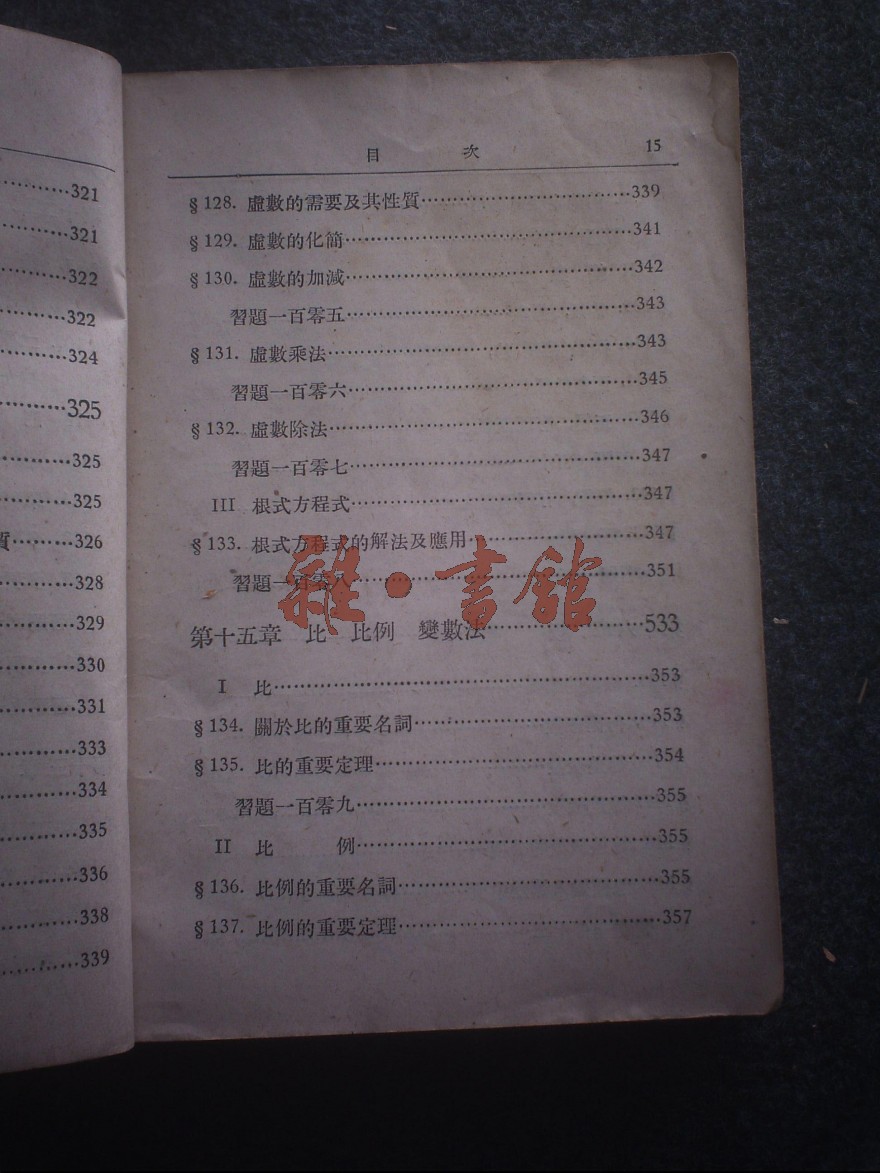 321
321
322
322
324
325
325
325
質 326
328
329
330
331
333
334
335
336
338
339
目 次 15
§ 128. 虛數的需要及其性質 339
§ 129. 虛數的化簡 341
§ 130. 虛數的加減 342
習題一百零五 343
§ 131. 虛數乘法 343
習題一百零六 345
§ 132. 虛數除法 346
習題一百零七 347
III 根式方程式 347
§ 133. 根式方程式的解法及應用 347
習題一百零八 351
雜·書館
第十五章 比 比例 變數法 533
I 比 353
§ 134. 關於比的重要名詞 353
§ 135. 比的重要定理 354
習題一百零九 355
II 比 例 355
§ 136. 比例的重要名詞 355
§ 137. 比例的重要定理 357